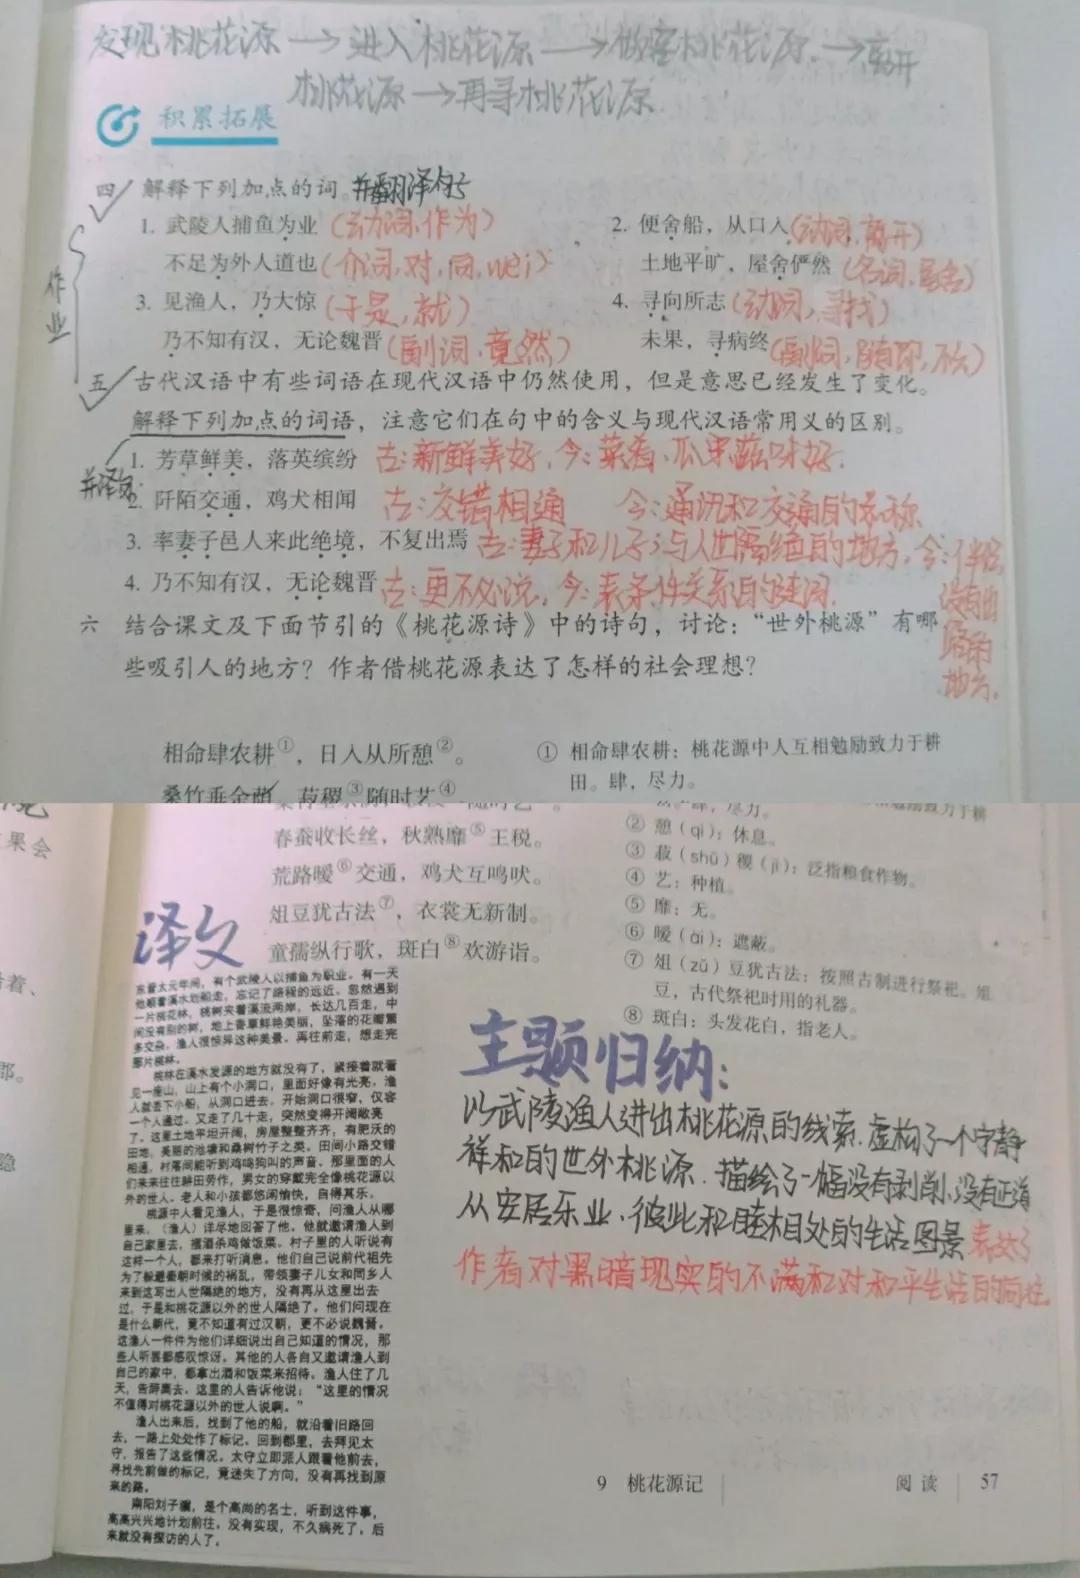 发现桃花源→进入桃花源→做客桃花源→离开
桃花源→再寻桃花源
积累拓展
四 解释下列加点的词。并翻译句
作业
1. 武陵人捕鱼为业(动词,作为)
不足为外人道也(介词,对,向,wèi)
2. 便舍船，从口入(动词,离开)
土地平旷，屋舍俨然(名词,居舍)
3. 见渔人，乃大惊(于是,就)
乃不知有汉，无论魏晋(副词,竟然)
4. 寻向所志(动词,寻找)
未果，寻病终(副词,随即,不久)
五 古代汉语中有些词语在现代汉语中仍然使用，但是意思已经发生了变化。
解释下列加点的词语，注意它们在句中的含义与现代汉语常用义的区别。
并译句
1. 芳草鲜美，落英缤纷 古:新鲜美好,今:菜肴、瓜果滋味好.
2. 阡陌交通，鸡犬相闻 古:交错相通 今:通讯和交通的总称
3. 率妻子邑人来此绝境，不复出焉 古:妻子和儿子;与人世隔绝的地方,今:
没有出路的地方.
4. 乃不知有汉，无论魏晋 古:更不必说,今:表条件关系的连词.
六 结合课文及下面节引的《桃花源诗》中的诗句，讨论：“世外桃源”有哪
些吸引人的地方？作者借桃花源表达了怎样的社会理想？
相命肆农耕①，日入从所憩②。
桑竹垂余荫，菽稷③随时艺④
① 相命肆农耕：桃花源中人互相勉励致力于耕
田。肆，尽力。
春蚕收长丝，秋熟靡⑤王税。
荒路暧⑥交通，鸡犬互鸣吠。
俎豆犹古法⑦，衣裳无新制。
童孺纵行歌，斑白⑧欢游诣。
② 憩（qì）：休息。
③ 菽（shū）稷（jì）：泛指粮食作物。
④ 艺：种植。
⑤ 靡：无。
⑥ 暧（ài）：遮蔽。
⑦ 俎（zǔ）豆犹古法：按照古制进行祭祀。俎
豆，古代祭祀时用的礼器。
⑧ 斑白：头发花白，指老人。
译文
东晋太元年间，有个武陵人以捕鱼为职业。有一天
他顺着溪水划船走，忘记了路程的远近。忽然遇到
一片桃花林，桃树夹着溪流两岸，长达几百走，中
间没有别的树，地上香草鲜艳美丽，坠落的花瓣繁
多交杂。渔人很惊异这种美景。再往前走，想走完
那片桃林。
桃林在溪水发源的地方就没有了，紧接着就看
见一座山，山上有个小洞口，里面好像有光亮。渔
人就丢下小船，从洞口进去。开始洞口很窄，仅容
一个人通过。又走了几十走，突然变得开阔敞亮
了。这里土地平坦开阔，房屋整整齐齐，有肥沃的
田地，美丽的池塘和桑树竹子之类。田间小路交错
相通，村落间能听到鸡鸣狗叫的声音。那里面的人
们来来往往耕田劳作，男女的穿戴完全像桃花源以
外的世人。老人和小孩都悠闲愉快，自得其乐。
桃源中人看见渔人，于是很惊奇，问渔人从哪
里来，（渔人）详尽地回答了他。他就邀请渔人到
自己家里去，摆酒杀鸡做饭菜。村子里的人听说有
这样一个人，都来打听消息。他们自己说前代祖先
为了躲避秦朝时候的祸乱，带领妻子儿女和同乡人
来到这写出人世隔绝的地方，没有再从这里出去
过，于是和桃花源以外的世人隔绝了。他们问现在
是什么朝代，竟不知道有过汉朝，更不必说魏晋。
这渔人一件件为他们详细说出自己知道的情况，那
些人听罢都感叹惊讶。其他的人各自又邀请渔人到
自己的家中，都拿出酒和饭菜来招待。渔人住了几
天，告辞离去。这里的人告诉他说：“这里的情况
不值得对桃花源以外的世人说啊。”
渔人出来后，找到了他的船，就沿着旧路回
去，一路上处处作了标记。回到郡里，去拜见太
守，报告了这些情况。太守立即派人跟着他前去，
寻找先前做的标记，竟迷失了方向，没有再找到原
来的路。
南阳刘子骥，是个高尚的名士，听到这件事，
高高兴兴地计划前往。没有实现，不久病死了。后
来就没有探访的人了。
主题归纳:
以武陵渔人进出桃花源的线索,虚构了一个宁静
祥和的世外桃源.描绘了一幅没有剥削,没有正道
从安居乐业,彼此和睦相处的生活图景 表达了
作者对黑暗现实的不满和对和平生活的向往.
9 桃花源记
阅读 57